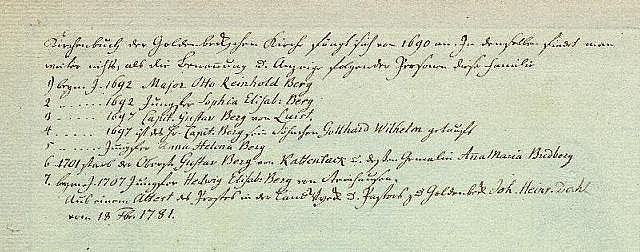 Kirchenbuch der Goldenbeckschen Kirche fängt sich von 1690 an. In demselben findet man
weiter nichts, als die Benennung u. Anzeige folgender Personen dieser Familie
1) beym J. 1692 Major Otto Reinhold Berg
2 . . . . . . 1692 Jungfer Sophia Elisab: Berg
3 . . . . . . 1697 Capit. Gustav Berg von Luist.
4 . . . . . . 1697 ist des Hr. Capit. Berg sein Söhnchen Gotthard Wilhelm getauft
5 . . . . . . Jungfer Anna Helena Berg
6 1701 starb der Obriste Gustav Berg von Kattentack u. dessen Gemalin Ana Maria Budberg
7. beym J. 1707 Jungfer Hedwig Elisab: Berg von
Aus einem Attest des Pastors zu Goldenbeck Joh. Heinr.
vom 18 Fbr. 1781.